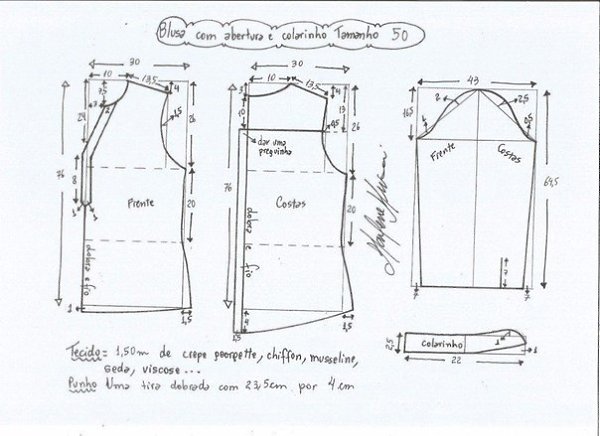 Blusa com abertura e colarinho Tamanho 50
30
10
13,5
4
7,5
3
2
1,5
24
26
76
8
Frente
20
dobra e fio
1
1
1
1,5
30
10
13,5
4
3
10
13
0,5
26
dar uma preguinha
76
Costas
20
dobra e fio
1,5
1,5
43
16,5
2
2,5
1
0,5
Frente
Costas
64,5
7
7
7
colarinho
2,5
22
1
1
Tecido = 1,50m de crepe georgette, chiffon, musseline,
seda, viscose...
Punho Uma tira dobrada com 23,5cm por 4cm